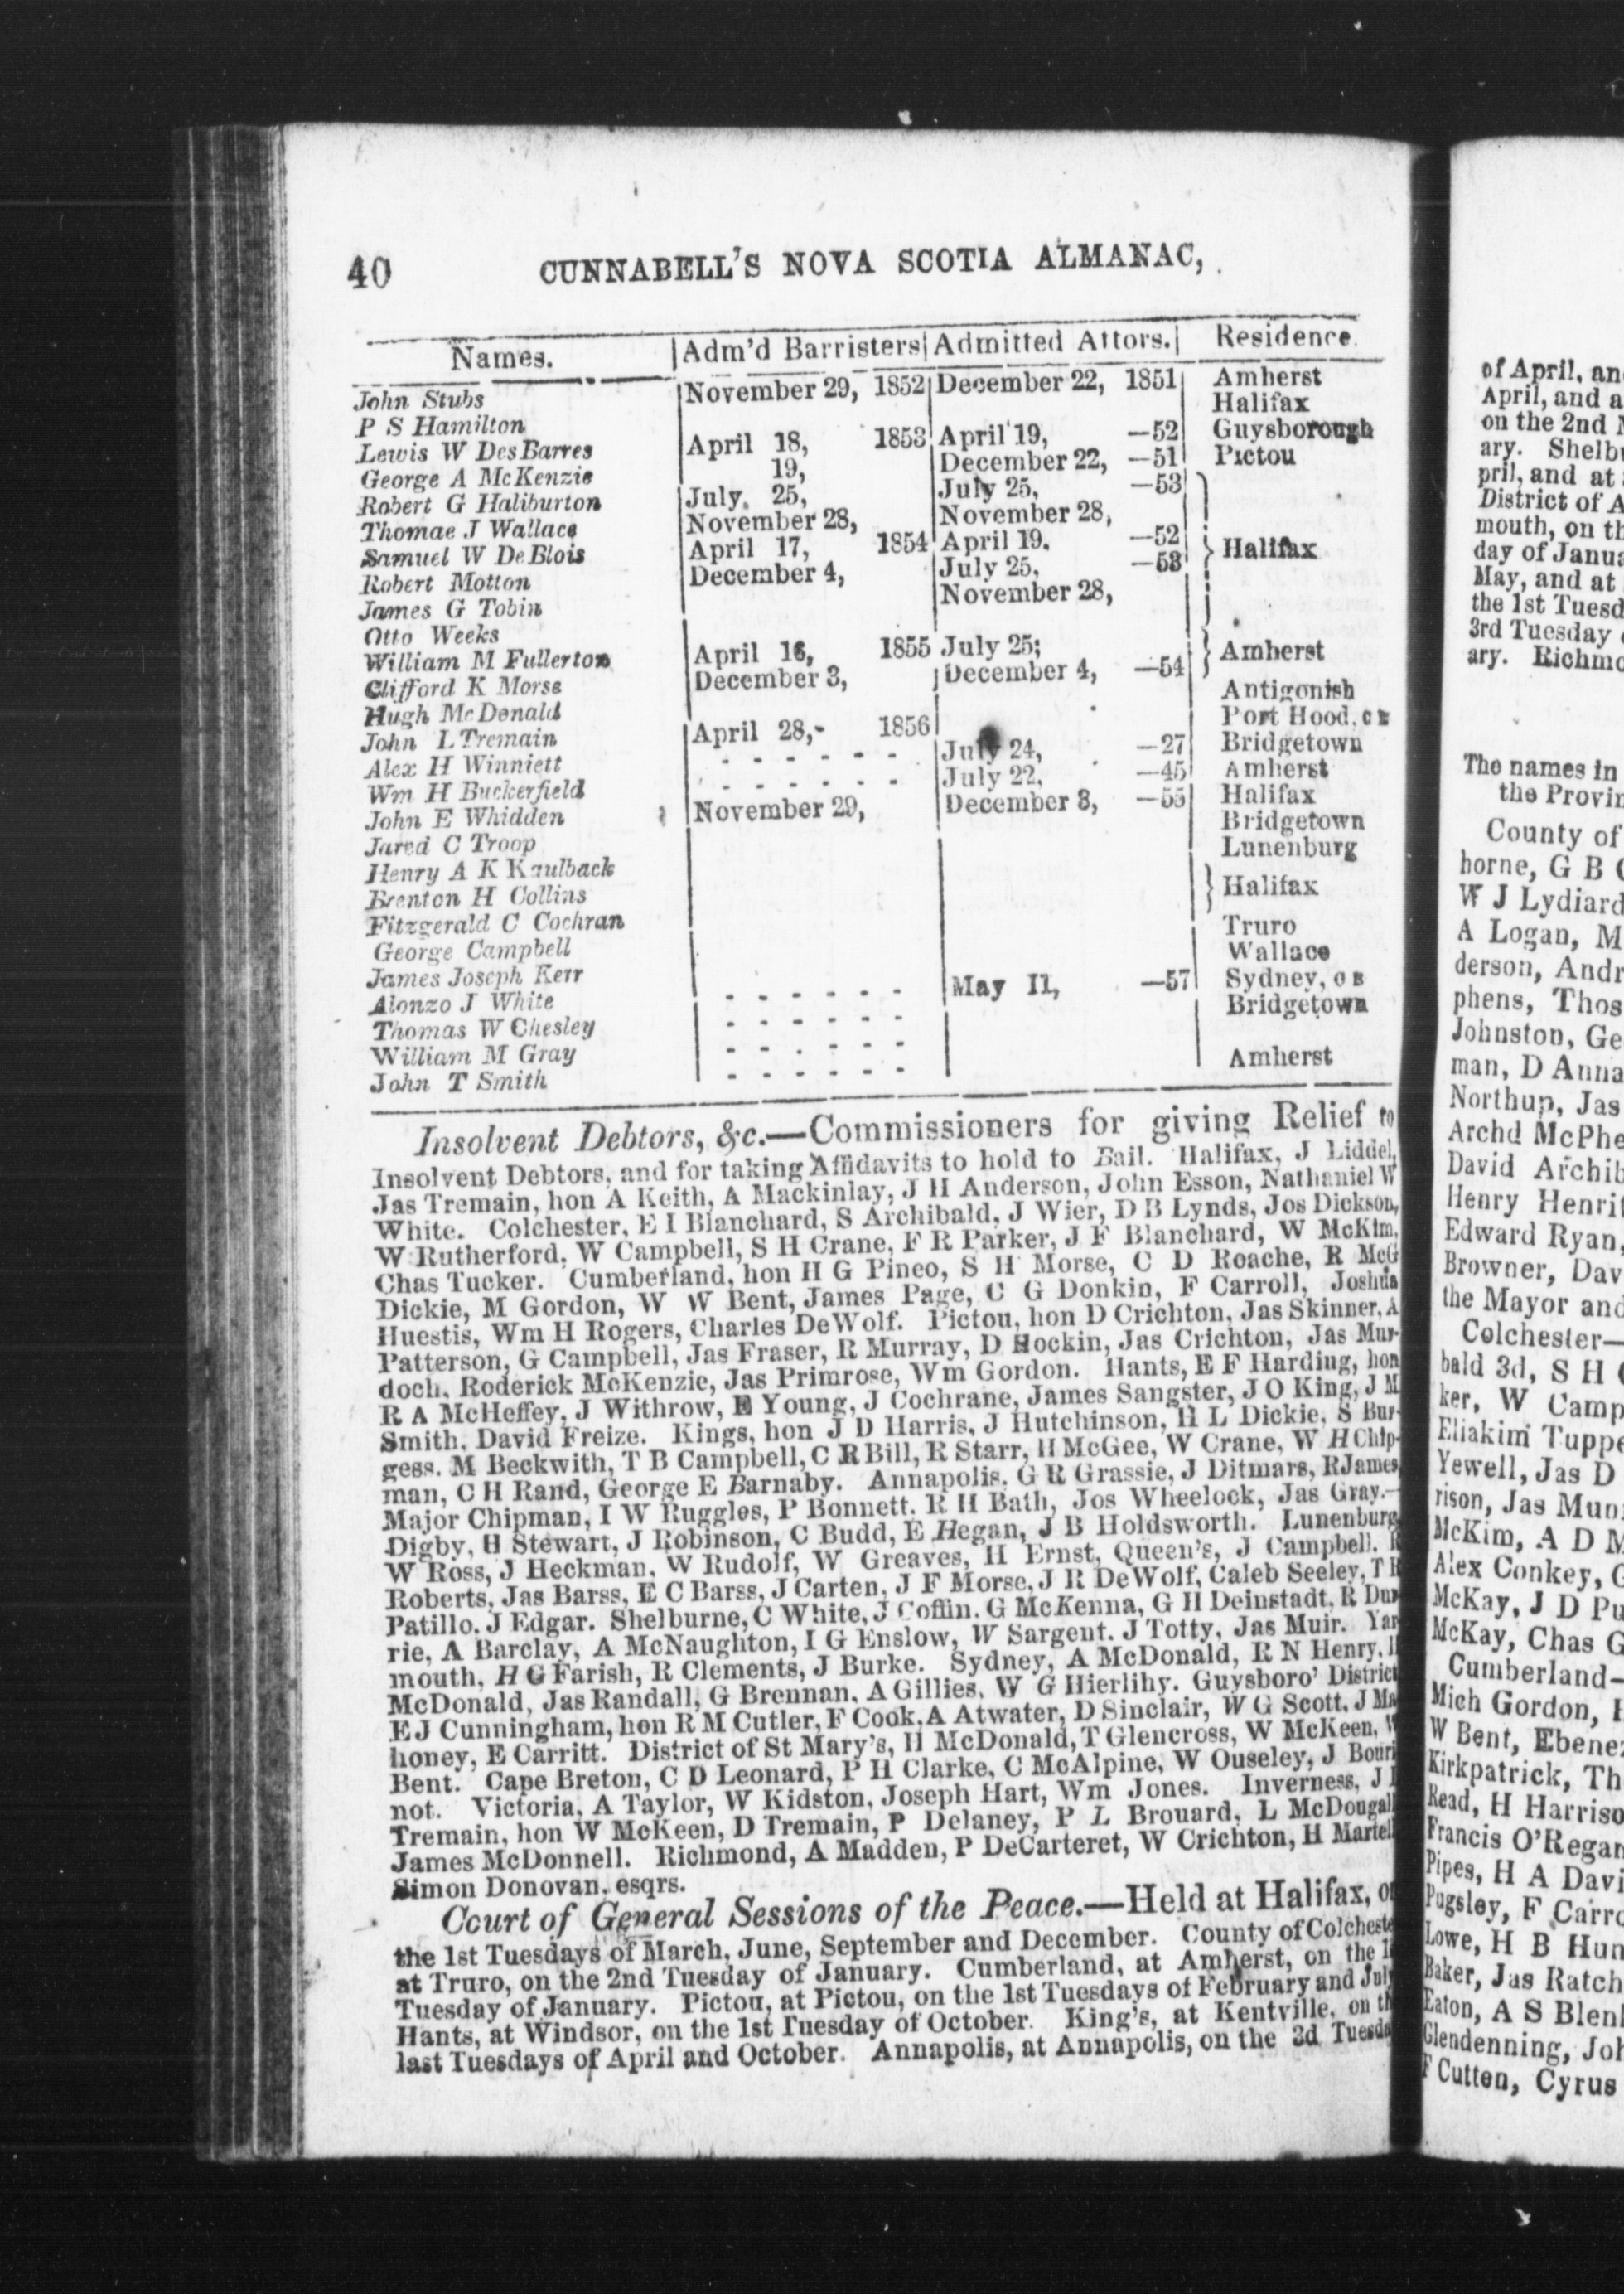 40 CUNNABELL'S NOVA SCOTIA ALMANAC,
Names. Adm'd Barristers Admitted Attors. Residence.
John Stubs November 29, 1852 December 22, 1851 Amherst
P S Hamilton Halifax
Lewis W DesBarres April 18, 1853 April 19, —52 Guysborough
George A McKenzie 19, December 22, —51 Pictou
Robert G Haliburton July, 25, July 25, —53
Thomae J Wallace November 28, November 28,
Samuel W DeBlois April 17, 1854 April 19. —52 Halifax
Robert Motton December 4, July 25, —53
James G Tobin November 28,
Otto Weeks
William M Fullerton April 16, 1855 July 25; Amherst
Clifford K Morse December 3, December 4, —54
Hugh McDonald Antigonish
John L Tremain April 28,- 1856 Port Hood, C B
Alex H Winniett - - - - - - July 24, —27 Bridgetown
Wm H Buckerfield - - - - - - July 22, —45 Amherst
John E Whidden November 29, December 3, —55 Halifax
Jared C Troop Bridgetown
Henry A K Kaulback Lunenburg
Brenton H Collins Halifax
Fitzgerald C Cochran
George Campbell Truro
James Joseph Kerr Wallace
Alonzo J White - - - - - - May 11, —57 Sydney, C B
Thomas W Chesley - - - - - - Bridgetown
William M Gray - - - - - -
John T Smith - - - - - - Amherst
Insolvent Debtors, &c.—Commissioners for giving Relief to
Insolvent Debtors, and for taking Affidavits to hold to Bail. Halifax, J Liddel,
Jas Tremain, hon A Keith, A Mackinlay, J H Anderson, John Esson, Nathaniel W
White. Colchester, E I Blanchard, S Archibald, J Wier, D B Lynds, Jos Dickson,
W Rutherford, W Campbell, S H Crane, F R Parker, J F Blanchard, W McKim,
Chas Tucker. Cumberland, hon H G Pineo, S H Morse, C D Roache, R McG
Dickie, M Gordon, W W Bent, James Page, C G Donkin, F Carroll, Joshua
Huestis, Wm H Rogers, Charles DeWolf. Pictou, hon D Crichton, Jas Skinner, A
Patterson, G Campbell, Jas Fraser, R Murray, D Hockin, Jas Crichton, Jas Mur-
doch, Roderick McKenzie, Jas Primrose, Wm Gordon. Hants, E F Harding, hon
R A McHeffey, J Withrow, E Young, J Cochrane, James Sangster, J O King, J M
Smith, David Freize. Kings, hon J D Harris, J Hutchinson, H L Dickie, S Bur-
gess. M Beckwith, T B Campbell, C R Bill, R Starr, H McGee, W Crane, W H Chip-
man, C H Rand, George E Barnaby. Annapolis. G R Grassie, J Ditmars, R James,
Major Chipman, I W Ruggles, P Bonnett. R H Bath, Jos Wheelock, Jas Gray.—
Digby, H Stewart, J Robinson, C Budd, E Hegan, J B Holdsworth. Lunenburg
W Ross, J Heckman, W Rudolf, W Greaves, H Ernst, Queen's, J Campbell. R
Roberts, Jas Barss, E C Barss, J Carten, J F Morse, J R DeWolf, Caleb Seeley, T R
Patillo. J Edgar. Shelburne, C White, J Coffin. G McKenna, G H Deinstadt, R Dur
rie, A Barclay, A McNaughton, I G Enslow, W Sargent. J Totty, Jas Muir. Yar
mouth, H G Farish, R Clements, J Burke. Sydney, A McDonald, R N Henry.
McDonald, Jas Randall, G Brennan, A Gillies, W G Hierlihy. Guysboro' District
E J Cunningham, hon R M Cutler, F Cook, A Atwater, D Sinclair, W G Scott, J Ma
honey, E Carritt. District of St Mary's, H McDonald, T Glencross, W McKeen, W
Bent. Cape Breton, C D Leonard, P H Clarke, C McAlpine, W Ouseley, J Bouri
not. Victoria, A Taylor, W Kidston, Joseph Hart, Wm Jones. Inverness, J
Tremain, hon W McKeen, D Tremain, P Delaney, P L Brouard, L McDougall
James McDonnell. Richmond, A Madden, P DeCarteret, W Crichton, H Martell
Simon Donovan, esqrs.
Court of General Sessions of the Peace.—Held at Halifax, on
the 1st Tuesdays of March, June, September and December. County of Colcheste
at Truro, on the 2nd Tuesday of January. Cumberland, at Amherst, on the
Tuesday of January. Pictou, at Pictou, on the 1st Tuesdays of February and July
Hants, at Windsor, on the 1st Tuesday of October. King's, at Kentville, on th
last Tuesdays of April and October. Annapolis, at Annapolis, on the 3d Tuesda
of April, an
April, and a
on the 2nd
ary. Shelb
pril, and at
District of A
mouth, on th
day of Janua
May, and at
the 1st Tuesd
3rd Tuesday
ary. Richmo
The names in
the Provin
County of
horne, G B
W J Lydiard
A Logan, M
derson, Andr
phens, Thos
Johnston, Ge
man, D Anna
Northup, Jas
Archd McPhe
David Archib
Henry Henri
Edward Ryan,
Browner, Dav
the Mayor and
Colchester—
bald 3d, S H
ker, W Camp
Eliakim Tuppe
Yewell, Jas D
rison, Jas Mun
McKim, A D M
Alex Conkey, G
McKay, J D Pu
McKay, Chas G
Cumberland—
Mich Gordon,
W Bent, Ebene
Kirkpatrick, Th
Read, H Harriso
Francis O'Regan
Pipes, H A Davi
Pugsley, F Carro
Lowe, H B Hun
Baker, Jas Ratch
Eaton, A S Blen
Glendenning, Joh
F Cutten, Cyrus